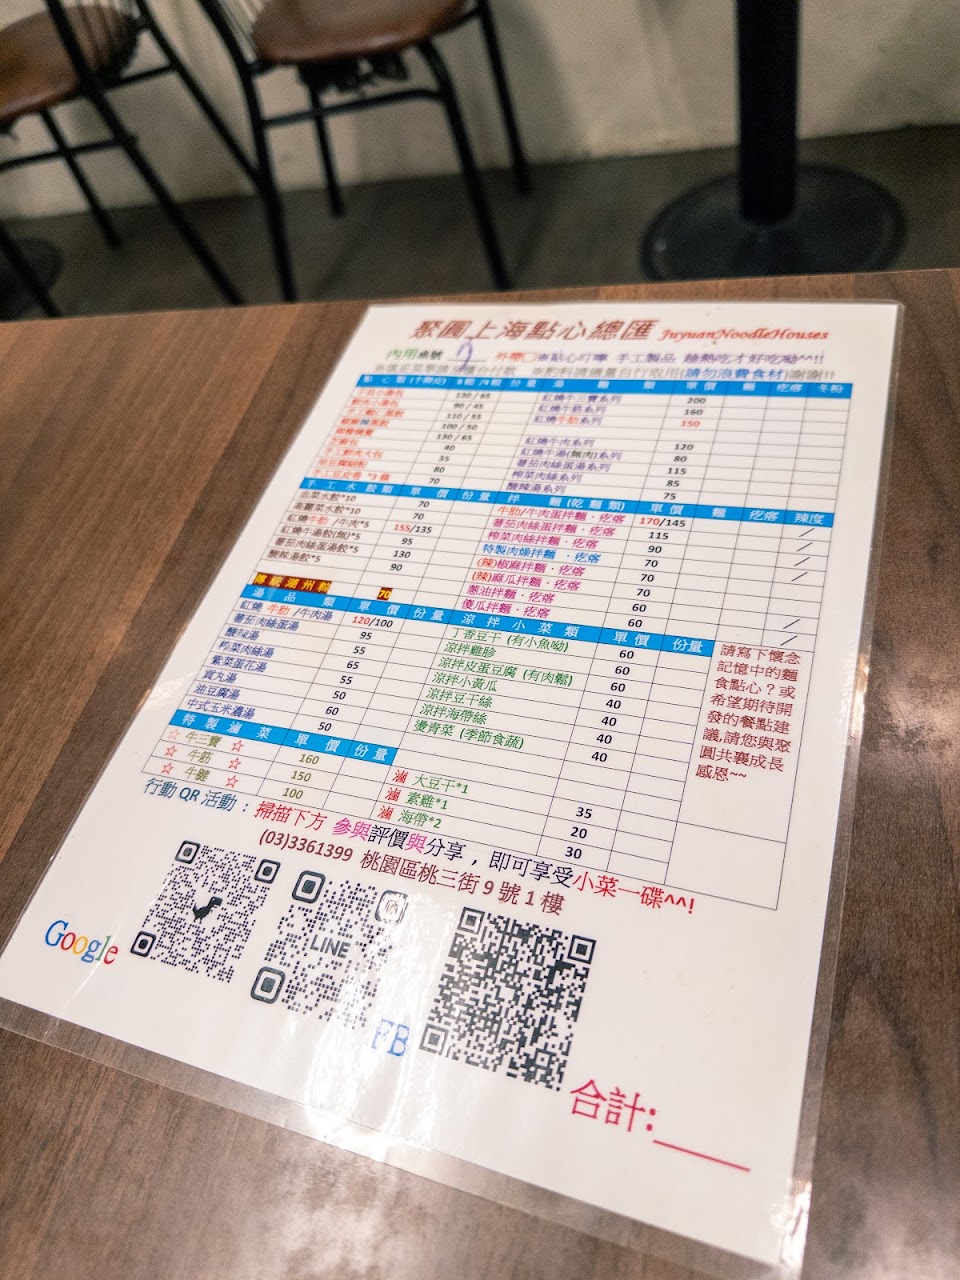 聚圓上海點心總匯 JuyuanNoodleHouses
內用桌號 外帶□※貼心叮嚀 手工製品 趁熱吃才好吃呦^^!!
※填妥菜單請至櫃台付款 ※酌料請適量自行取用(請勿浪費食材)謝謝!!
湯 麵 類 單 價 麵 疙瘩 冬粉
130/65 紅燒牛三寶系列 200
90/45 紅燒牛筋系列 160
110/55 紅燒牛肋系列 150
100/50
130/65 紅燒牛肉系列 120
芝麻包 40 紅燒牛湯(無肉)系列 80
手工鮮肉大包 35 蕃茄肉絲蛋湯系列 115
80 榨菜肉絲系列 85
70 酸辣湯系列 75
手 工 水 餃 類 單 價 份 量 拌 麵 (乾 麵 類) 單 價 麵 疙瘩 辣度
韭菜水餃*10 70 牛肋/牛肉蛋拌麵.疙瘩 170/145
高麗菜水餃*10 70 蕃茄肉絲蛋拌麵.疙瘩 115
紅燒牛肋/牛肉*5 155/135 榨菜肉絲拌麵.疙瘩 90
紅燒牛湯餃(無)*5 95 特製肉燥拌麵.疙瘩 70
蕃茄肉絲蛋湯餃*5 130 (辣)椒麻拌麵.疙瘩 70
酸辣湯餃*5 90 (辣)麻瓜拌麵.疙瘩 70
蔥油拌麵.疙瘩 60
傳統湖州粽 70 傻瓜拌麵.疙瘩 60
湯 品 類 單 價 份 量 涼 拌 小 菜 類 單 價 份量
紅燒 牛肋/牛肉湯 120/100 丁香豆干 (有小魚呦) 60
蕃茄肉絲蛋湯 95 涼拌雞胗 60
酸辣湯 55 涼拌皮蛋豆腐 (有肉鬆) 60
榨菜肉絲湯 65 涼拌小黃瓜 40
紫菜蛋花湯 55 涼拌豆干絲 40
貢丸湯 50 涼拌海帶絲 40
油豆腐湯 60 燙青菜 (季節食蔬) 40
中式玉米濃湯 50
請寫下懷念
記憶中的麵
食點心？或
希望期待開
發的餐點建
議,請您與聚
圓共襄成長
感恩~~
特 製 滷 菜 單 價 份 量
☆ 牛三寶 ☆ 160 滷 大豆干*1 35
☆ 牛筋 ☆ 150 滷 素雞*1 20
☆ 牛腱 ☆ 100 滷 海帶*2 30
行動 QR 活動：掃描下方 參與評價與分享，即可享受小菜一碟^^!
(03)3361399 桃園區桃三街 9 號 1 樓
Google
LINE
FB
合計: